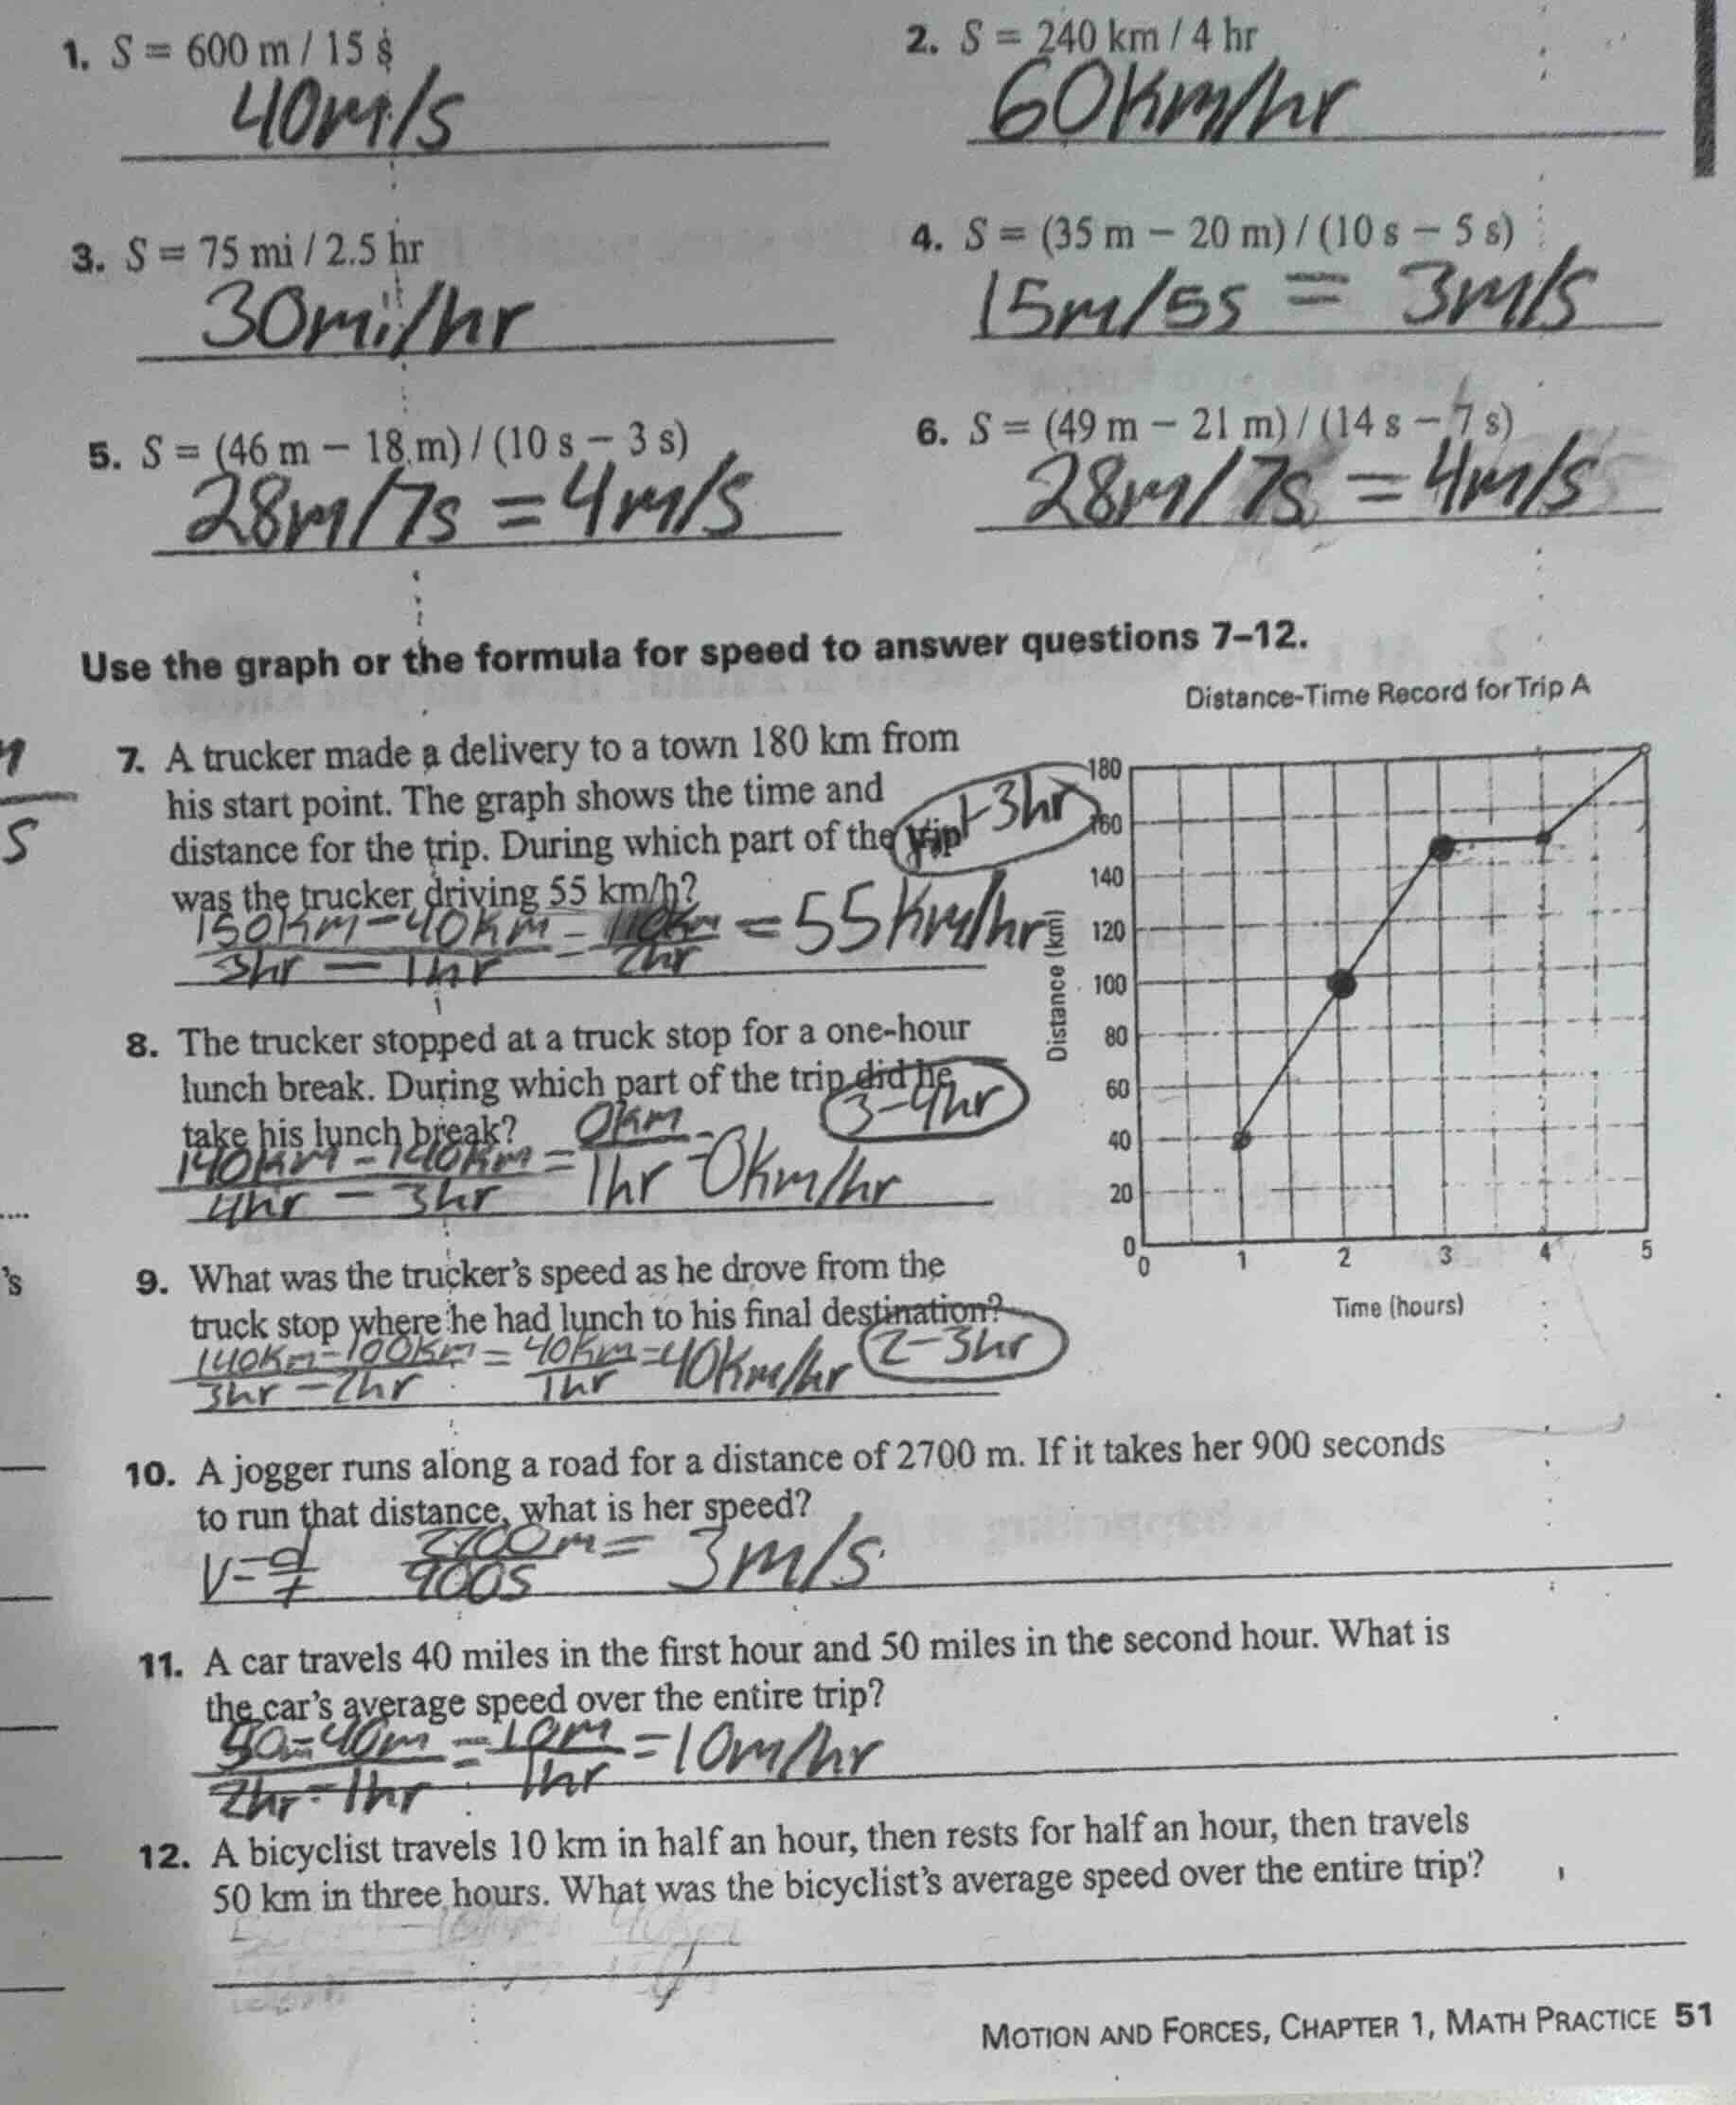 1. S = 600 m / 15 s
40m/s
2. S = 240 km / 4 hr
60km/hr
3. S = 75 mi / 2.5 hr
30mi/hr
4. S = (35 m − 20 m) / (10 s − 5 s)
15m/5s = 3m/s
5. S = (46 m − 18 m) / (10 s − 3 s)
28m/7s = 4m/s
6. S = (49 m − 21 m) / (14 s − 7 s)
28m/7s = 4m/s
Use the graph or the formula for speed to answer questions 7–12.
7. A trucker made a delivery to a town 180 km from
his start point. The graph shows the time and
distance for the trip. During which part of the trip
was the trucker driving 55 km/h?
1-3hr
150km-40km = 110km = 55km/hr
3hr - 1hr 2hr
8. The trucker stopped at a truck stop for a one-hour
lunch break. During which part of the trip did he
take his lunch break?
3-4hr
140km-140km = 0km = 0km/hr
4hr - 3hr 1hr
9. What was the trucker's speed as he drove from the
truck stop where he had lunch to his final destination?
140km-100km = 40km = 40km/hr 2-3hr
3hr - 2hr 1hr
Distance-Time Record for Trip A
Distance (km)
180
160
140
120
100
80
60
40
20
0
0 1 2 3 4 5
Time (hours)
10. A jogger runs along a road for a distance of 2700 m. If it takes her 900 seconds
to run that distance, what is her speed?
V=d 2700m = 3m/s
t 900s
11. A car travels 40 miles in the first hour and 50 miles in the second hour. What is
the car's average speed over the entire trip?
50m-40m = 10m = 10m/hr
2hr-1hr 1hr
12. A bicyclist travels 10 km in half an hour, then rests for half an hour, then travels
50 km in three hours. What was the bicyclist's average speed over the entire trip?
MOTION AND FORCES, CHAPTER 1, MATH PRACTICE 51